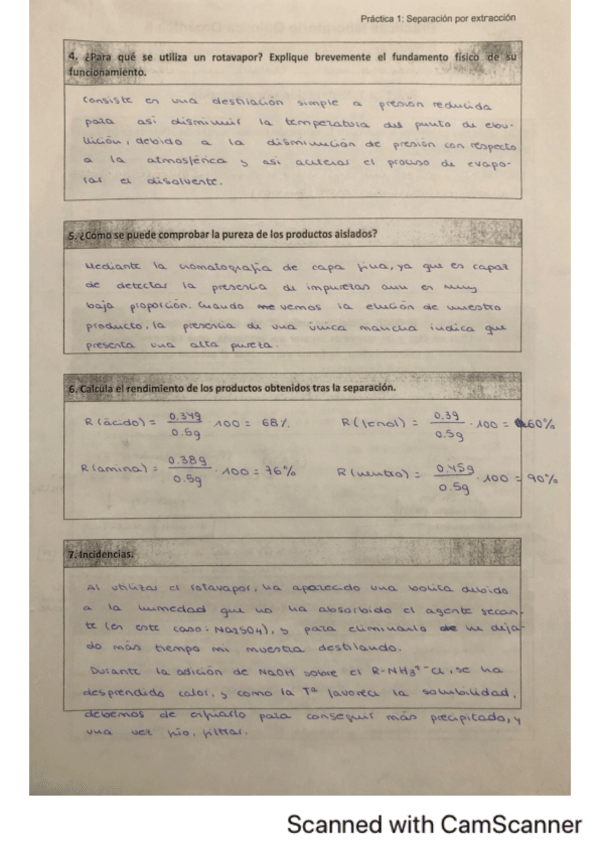 Práctica 1: Separación por extracción
4. ¿Para qué se utiliza un rotavapor? Explique brevemente el fundamento físico de su
funcionamiento.
Consiste en una destilación simple a presión reducida
para así disminuir la temperatura del punto de ebu-
llición, debido a la disminución de presión con respecto
a la atmosférica y así acelerar el proceso de evapo-
rar el disolvente.
5. ¿Cómo se puede comprobar la pureza de los productos aislados?
Mediante la cromatografía de capa fina, ya que es capaz
de detectar la presencia de impurezas aun en muy
baja proporción. Cuando vemos la elución de nuestro
producto, la presencia de una única mancha indica que
presenta una alta pureza.
6. Calcula el rendimiento de los productos obtenidos tras la separación.
R (ácido) = 0.34g / 0.5g · 100 = 68% R (fenol) = 0.3g / 0.5g · 100 = 60%
R (amina) = 0.38g / 0.5g · 100 = 76% R (neutro) = 0.45g / 0.5g · 100 = 90%
7. Incidencias.
Al utilizar el rotavapor, ha aparecido una bolita debido
a la humedad que no ha absorbido el agente secan-
te (en este caso: Na2SO4), y para eliminarlo he deja-
do más tiempo mi muestra destilando.
Durante la adición de NaOH sobre el R-NH3+ -Cl, se ha
desprendido calor, y como la Tª favorece la solubilidad,
debemos de enfriarlo para conseguir más precipitado, y
una vez frío, filtrar.
Scanned with CamScanner